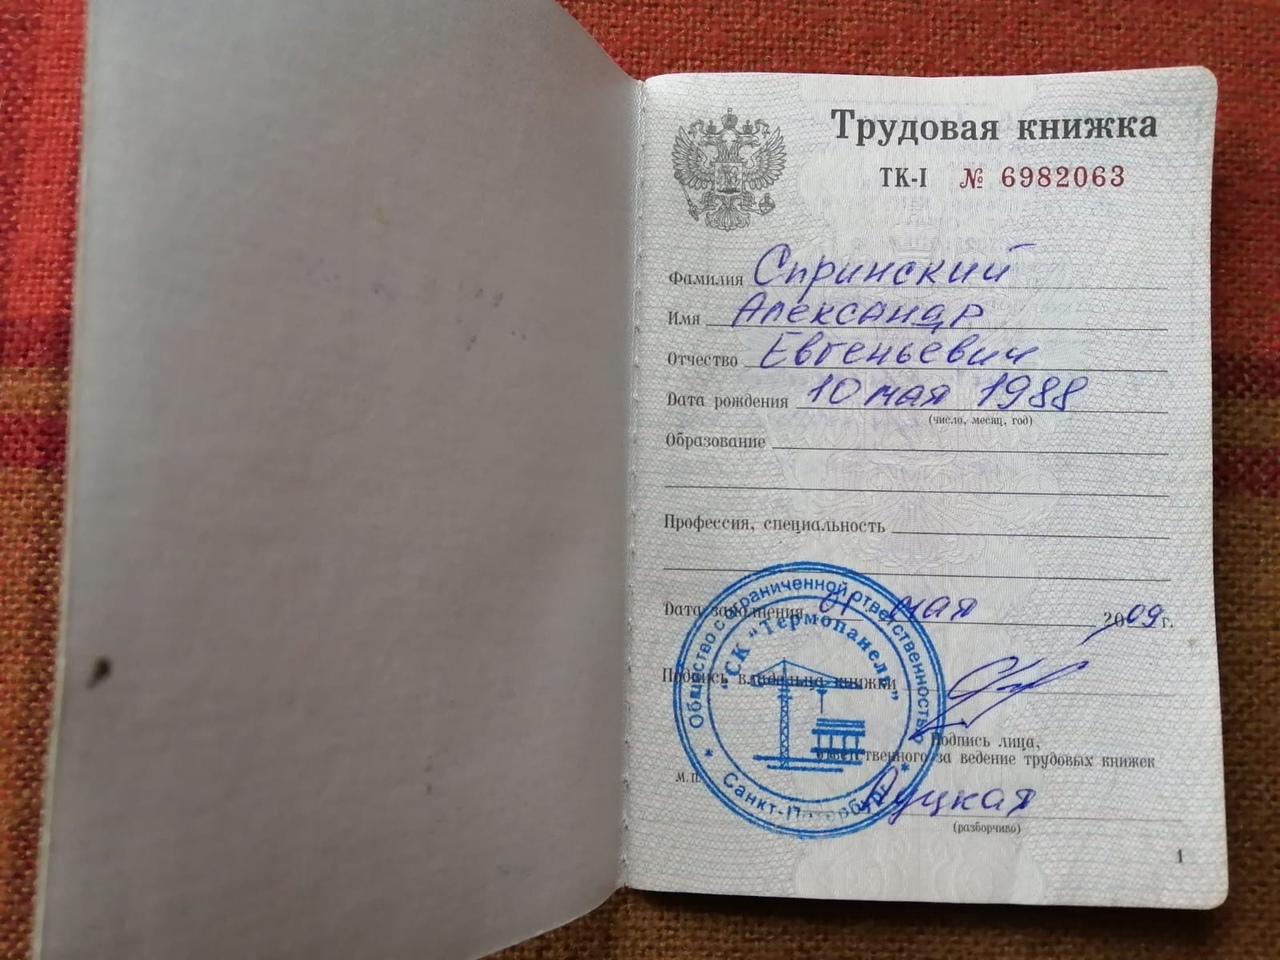 Трудовая книжка
ТК-I № 6982063
Фамилия Спринский
Имя Александр
Отчество Евгеньевич
Дата рождения 10 мая 1988
(число, месяц, год)
Образование
Профессия, специальность
Дата заполнения 01 мая 2009 г.
Подпись владельца книжки
Подпись лица,
ответственного за ведение трудовых книжек
М.П.
Луцкая
(разборчиво)
Общество с ограниченной ответственностью
"СК "Термопанель"
* Санкт-Петербург *
1